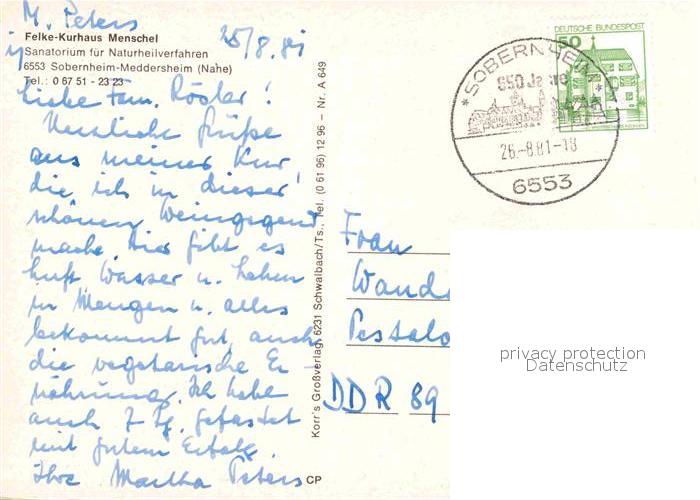 M. Peters
Felke-Kurhaus Menschel
Sanatorium für Naturheilverfahren
6553 Sobernheim-Meddersheim (Nahe)
Tel.: 0 67 51 - 23 23
25/8.81
Liebe Fam. Rösler!
Herzliche Grüße
aus meiner Kur,
die ich in dieser
schönen Weingegend
mache. Hier gibt es
Luft, Wasser u. Lehm
in Mengen u. alles
bekommt gut, auch
die vegetarische Er-
nährung. Ich habe
auch 7 Tg. gefastet
mit gutem Erfolg.
Ihre Martha Peters
CP
Korr's Großverlag, 6231 Schwalbach/Ts., Tel. (0 61 96) 12 96 – Nr. A 649
DEUTSCHE BUNDESPOST
50
* SOBERNHEIM *
650 Jahre
26.-8.81-18
6553
Frau
Wand
Pestalo
DDR 89
privacy protection
Datenschutz